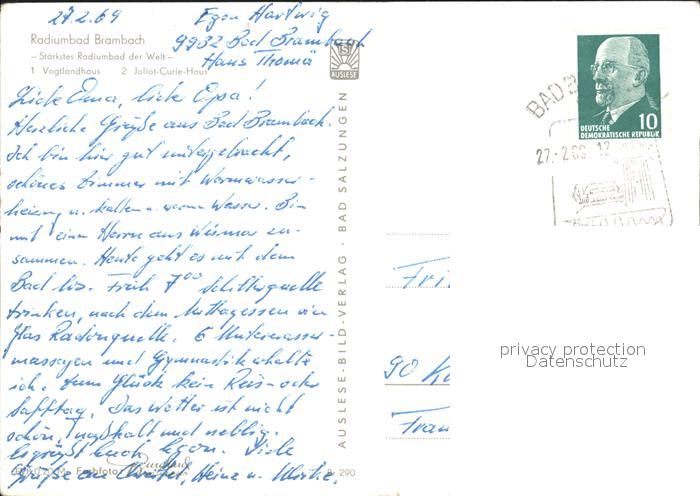 27.2.69
Egon Hartwig
9932 Bad Brambach
Haus Thomä
Radiumbad Brambach
– Stärkstes Radiumbad der Welt –
1 Vogtlandhaus 2 Joliot-Curie-Haus
AUSLESE
Liebe Oma, lieber Opa!
Herzliche Grüße aus Bad Brambach.
Ich bin hier gut untergebracht,
schönes Zimmer mit Warmwasser-
heizung u. kalten u. warme Wasser. Bin
mit einem Herrn aus Wismar zu-
sammen. Heute geht es mit dem
Bad los. Früh 7⁰⁰ Schillerquelle
trinken, nach dem Mittagessen ein
Glas Radonquelle. 6 Unterwasser-
massagen und Gymnastik erhalte
ich. Zum Glück kein Reis- oder
Safttag. Das Wetter ist nicht
schön, naßkalt und neblig.
Es grüßt Euch Egon. Viele
Grüße an Heinz u.
Farbfoto:
290
AUSLESE-BILD-VERLAG · BAD SALZUNGEN
BAD B
10
DEUTSCHE
DEMOKRATISCHE REPUBLIK
27.-2.69.-12
Fri
90 K
Frau
privacy protection
Datenschutz